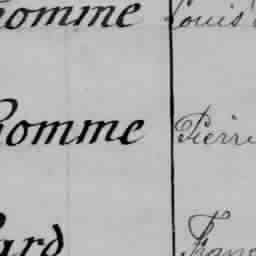 homme Louis
homme Pierre
ard Franç